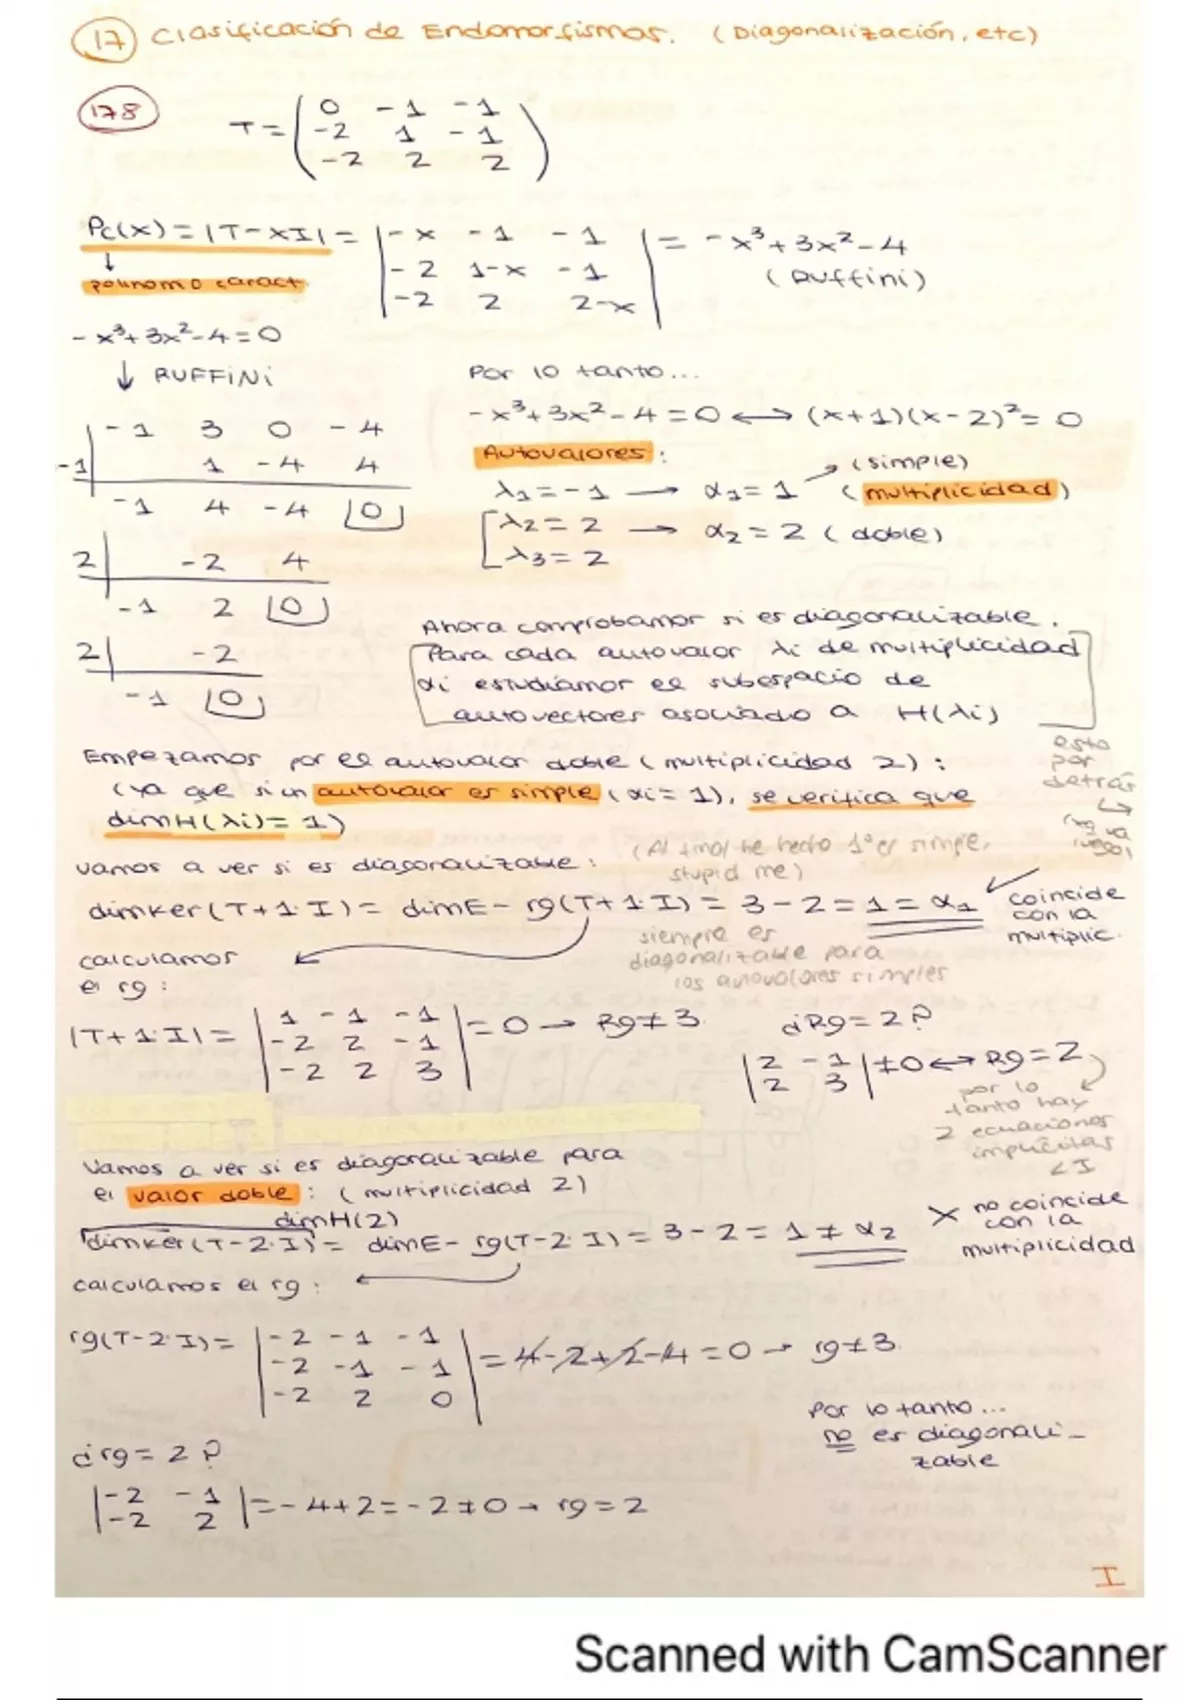 17 Clasificación de Endomorfismos. (Diagonalización, etc)
178
T = ( 0 -1 -1
-2 1 -1
-2 2 2 )
Pc(x) = |T-xI| = | -x -1 -1
-2 1-x -1
-2 2 2-x | = -x³+3x²-4
(Ruffini)
↓
polinomio caract
-x³+3x²-4=0
↓ RUFFINI
-1 3 0 -4
-1| 1 -4 4
-1 4 -4 |0|
2| -2 4
-1 2 |0|
2| -2
-1 |0|
Por lo tanto...
-x³+3x²-4=0 ↔ (x+1)(x-2)²=0
Autovalores:
λ1=-1 → α1=1 (simple)
(multiplicidad)
λ2=2 → α2=2 (doble)
λ3=2
Ahora comprobamos si es diagonalizable.
Para cada autovalor λi de multiplicidad
αi estudiamos el subespacio de
autovectores asociado a H(λi)
esto
por
detrás
Empezamos por el autovalor doble (multiplicidad 2):
(ya que si un autovalor es simple (αi=1), se verifica que
dimH(λi)=1)
(Al final he hecho 1º el simple,
stupid me)
vamos a ver si es diagonalizable:
dimker(T+1·I) = dimE - rg(T+1·I) = 3-2 = 1 = α1
coincide
con la
multiplic.
siempre es
diagonalizable para
los autovalores simples
calculamos
el rg:
|T+1·I| = | 1 -1 -1
-2 2 -1
-2 2 3 | = 0 → Rg≠3
¿Rg=2?
| 2 -1
2 3 | ≠0 ↔ Rg=2
por lo
tanto hay
2 ecuaciones
implícitas
Vamos a ver si es diagonalizable para
el valor doble: (multiplicidad 2)
dimH(2)
dimker(T-2·I) = dimE - rg(T-2·I) = 3-2 = 1 ≠ α2
X no coincide
con la
multiplicidad
calculamos el rg:
rg(T-2·I) = | -2 -1 -1
-2 -1 -1
-2 2 0 | = 4-2+2-4=0 → rg≠3
Por lo tanto...
no es diagonali-
zable
¿rg=2?
| -2 -1
-2 2 | = -4+2=-2≠0 → rg=2
I
Scanned with CamScanner